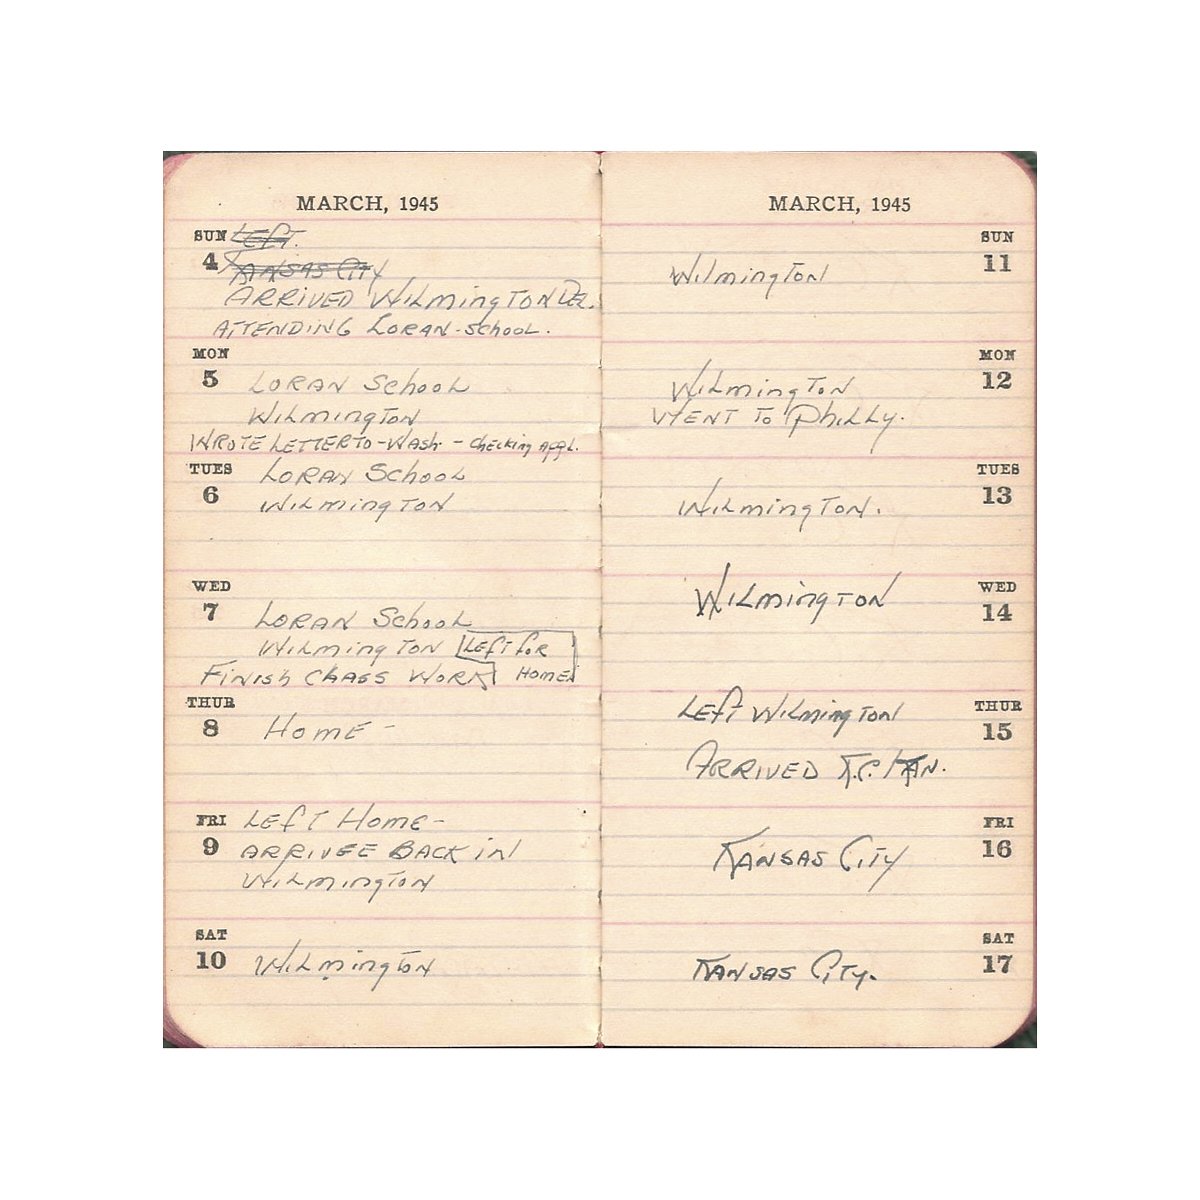 MARCH, 1945
SUN Left.
4 Kansas City
ARRIVED WILmington DEL.
ATTENDING LORAN-School.
MON
5 LORAN School
WILmington
WROTE LETTER TO-WASH. - checking appl.
TUES LORAN School
6 WILmington
WED
7 LORAN School
WILmington Left for
FINISH CLASS WORK HOME
THUR
8 HOME -
FRI LEFT HOME -
9 ARRIVEE BACK in
WILmington
SAT
10 WILmington
MARCH, 1945
SUN
WILmington 11
MON
WILmington 12
WENT TO PhiLLy.
TUES
WILmington. 13
WED
WILmington 14
Left WILmington THUR
15
ARRIVED K.C. KAN.
FRI
KANSAS CITY 16
SAT
KANSAS CITY. 17